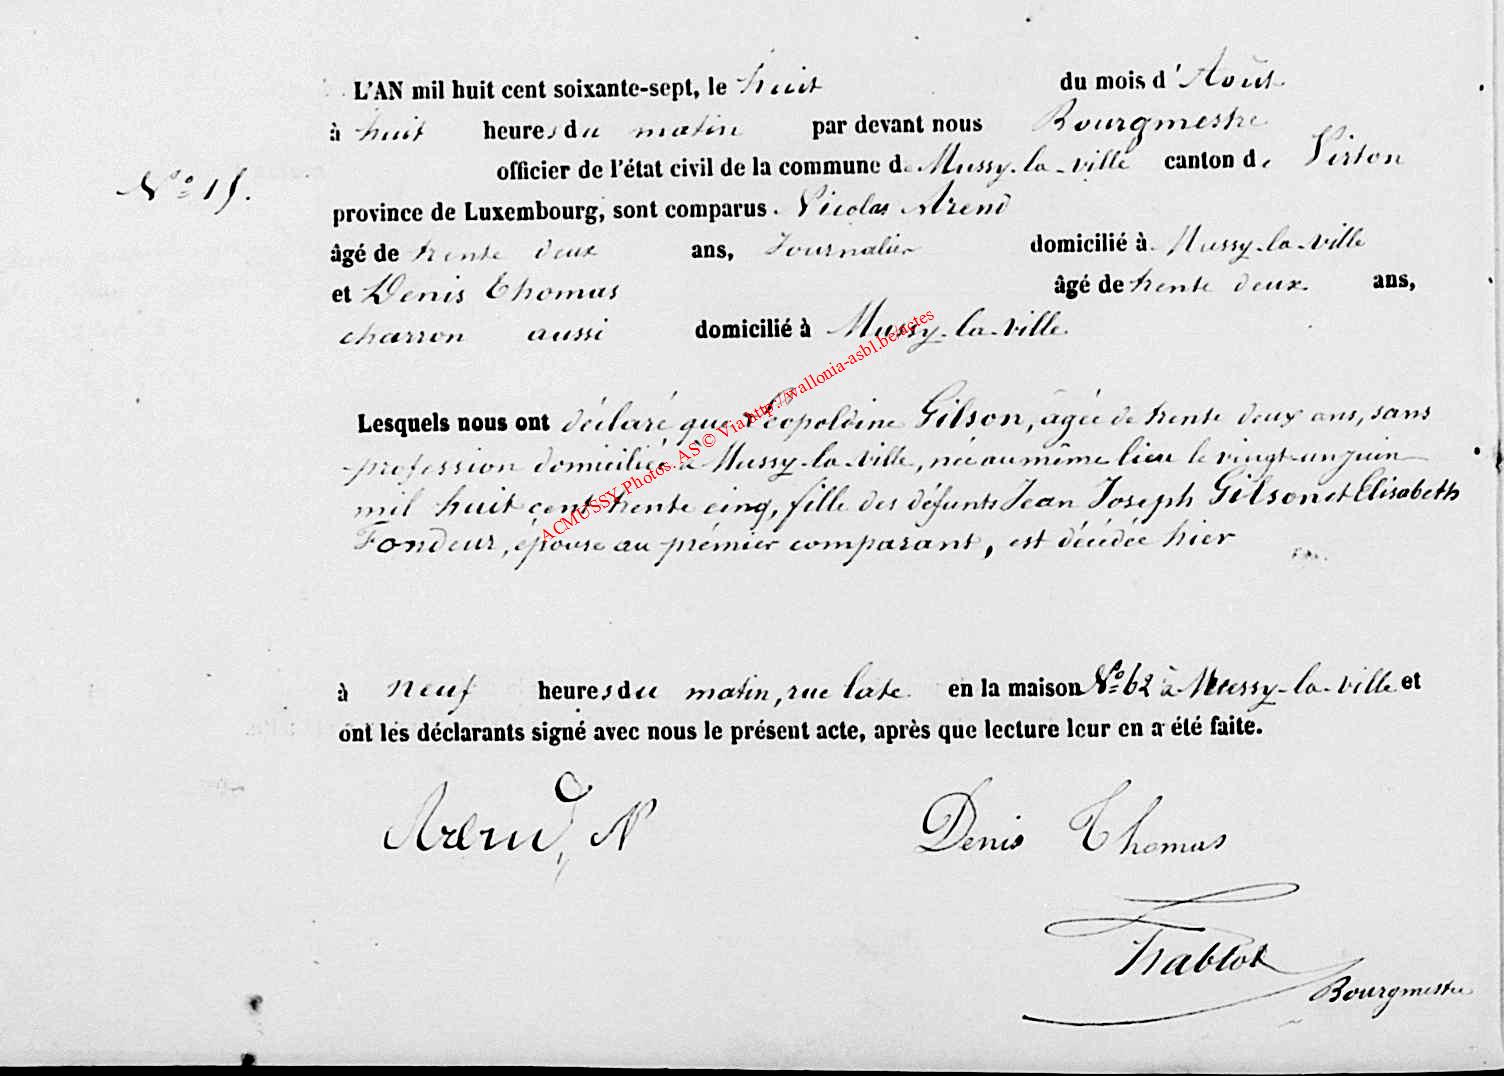 L'AN mil huit cent soixante-sept, le huit du mois d'Août
à huit heures du matin par devant nous Bourgmestre
officier de l'état civil de la commune de Mussy-la-ville canton de Virton
N° 15.
province de Luxembourg, sont comparus Nicolas Arend
âgé de trente deux ans, Journalier domicilié à Mussy-la-ville
et Denis Thomas âgé de trente deux ans,
charron aussi domicilié à Mussy-la-ville
Lesquels nous ont déclaré que Léopoldine Gilson, âgée de trente deux ans, sans
profession domiciliée à Mussy-la-ville, née au même lieu le vingt-un juin
mil huit cent trente cinq, fille des défunts Jean Joseph Gilson et Elisabeth
Fondeur, épouse au prémier comparant, est décédée hier
ACMUSSY Photos. AS © Via http://wallonia-asbl.be/actes
à neuf heures du matin, rue en la maison N° 62 à Mussy-la-ville et
ont les déclarants signé avec nous le présent acte, après que lecture leur en a été faite.
Arend, N Denis Thomas
Bourgmestre